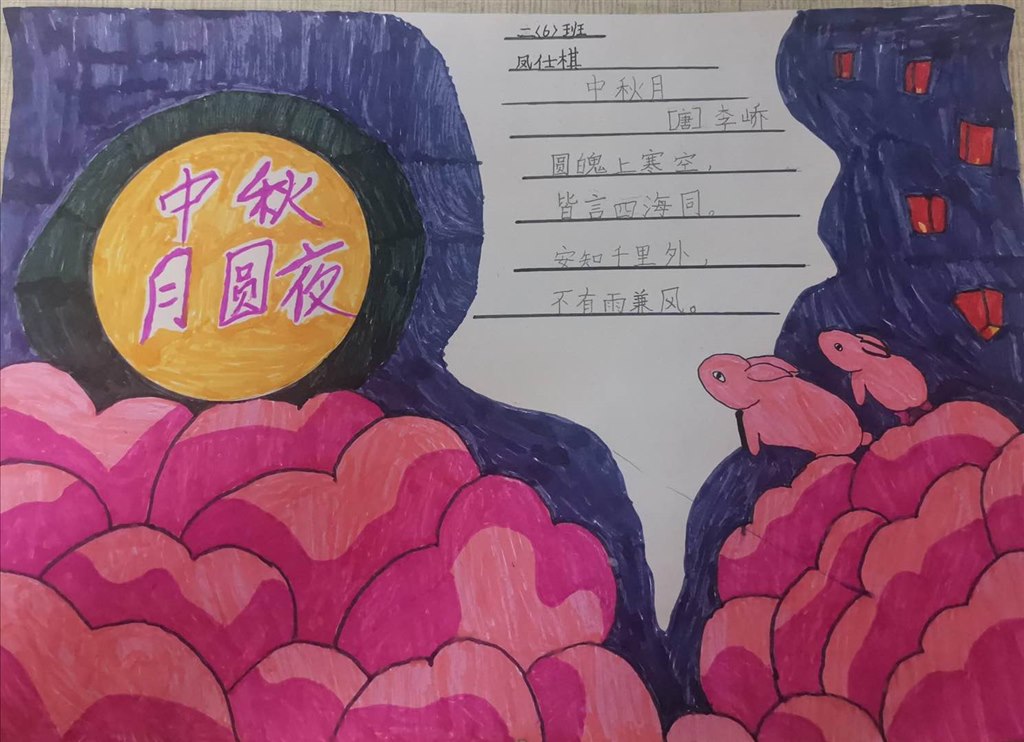 中秋
月圆夜
二〈6〉班
凤仕棋
中秋月
[唐] 李峤
圆魄上寒空，
皆言四海同。
安知千里外，
不有雨兼风。